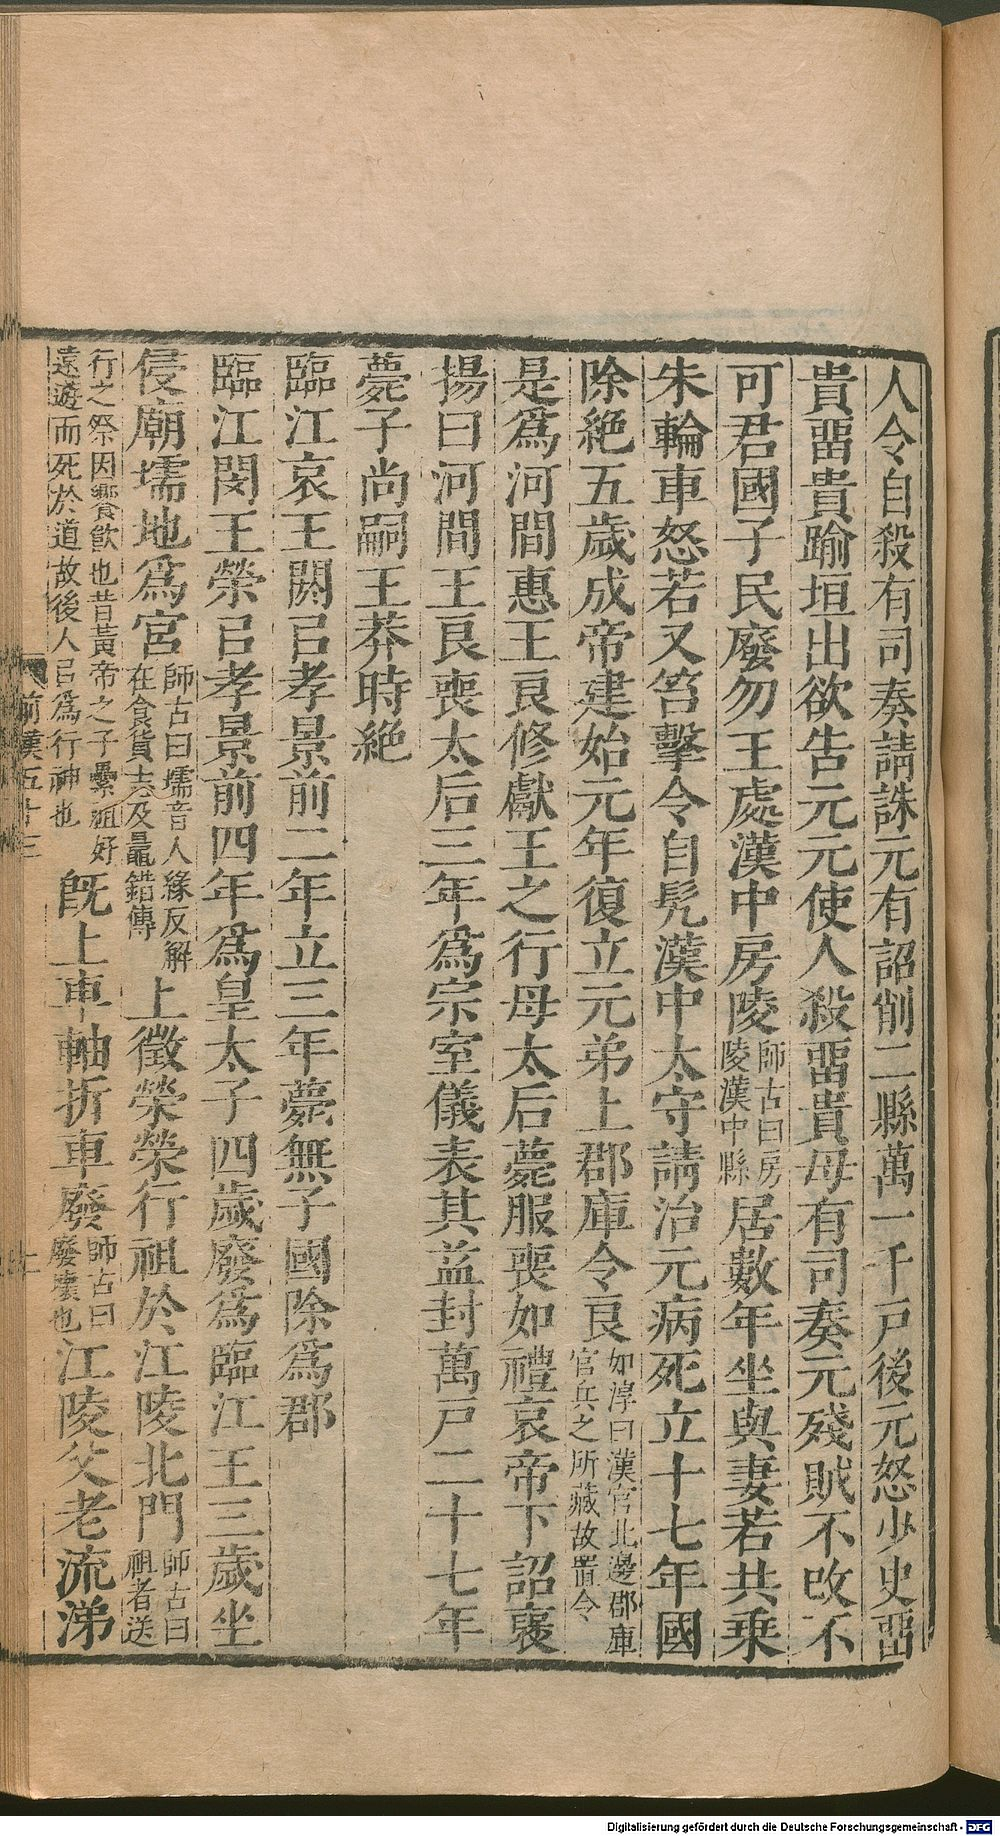 人令自殺有司奏請誅元有詔削二縣萬一千戶後元怒少史畱
貴畱貴踰垣出欲告元元使人殺畱貴母有司奏元殘賊不改不
可君國子民廢勿王處漢中房陵師古曰房陵漢中縣居數年坐與妻若共乘
朱輪車怒若又笞擊令自髠漢中太守請治元病死立十七年國
除絶五歲成帝建始元年復立元弟上郡庫令良如淳曰漢官北邊郡庫官兵之所藏故置令
是爲河間惠王良修獻王之行母太后薨服喪如禮哀帝下詔襃
揚曰河間王良喪太后三年爲宗室儀表其益封萬戶二十七年
薨子尚嗣王莽時絶
臨江哀王閼㠯孝景前二年立三年薨無子國除爲郡
臨江閔王榮㠯孝景前四年爲皇太子四歲廢爲臨江王三歲坐
侵廟壖地爲宮師古曰壖音人緣反解在食貨志及鼂錯傳上徵榮榮行祖於江陵北門師古曰祖者送
行之祭因饗飮也昔黃帝之子纍祖好遠遊而死於道故後人㠯爲行神也旣上車軸折車廢師古曰廢壞也江陵父老流涕
前漢五十三
Digitalisierung gefördert durch die Deutsche Forschungsgemeinschaft - DFG